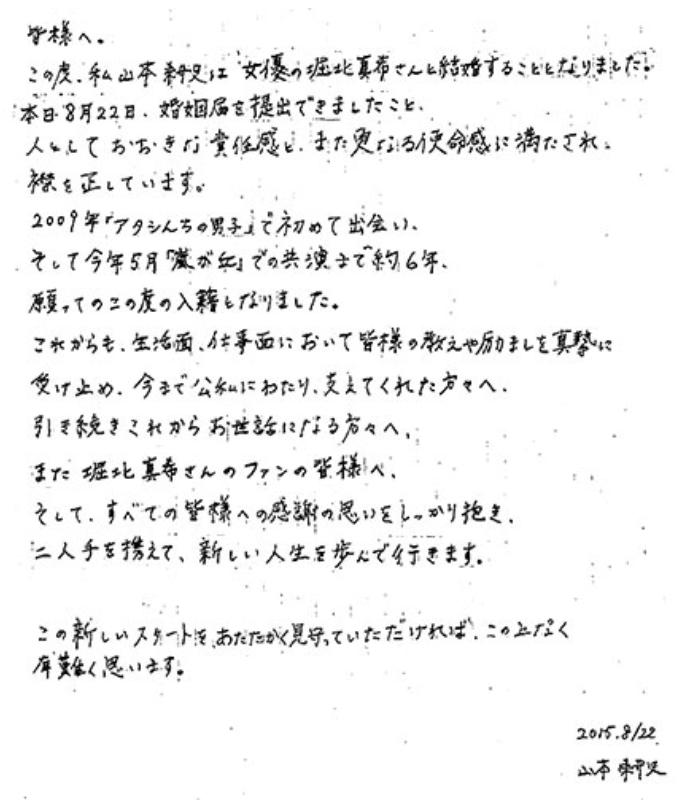 皆様へ。
この度、私山本耕史は女優の堀北真希さんと結婚することとなりました。
本日8月22日、婚姻届を提出できましたこと、
人としておおきな責任感と、また更なる使命感に満たされ、
襟を正しています。
2009年『アタシんちの男子』で初めて出会い、
そして今年5月『嵐が丘』での共演まで約6年、
願ってのこの度の入籍となりました。
これからも、生活面、仕事面において皆様の教えや励ましを真摯に
受け止め、今まで公私にわたり、支えてくれた方々へ、
引き続きこれからお世話になる方々へ、
また堀北真希さんのファンの皆様へ、
そして、すべての皆様への感謝の思いをしっかり抱き、
二人手を携えて、新しい人生を歩んで行きます。
この新しいスタートを、あたたかく見守っていただければ、この上なく
有難く思います。
2015.8/22
山本耕史